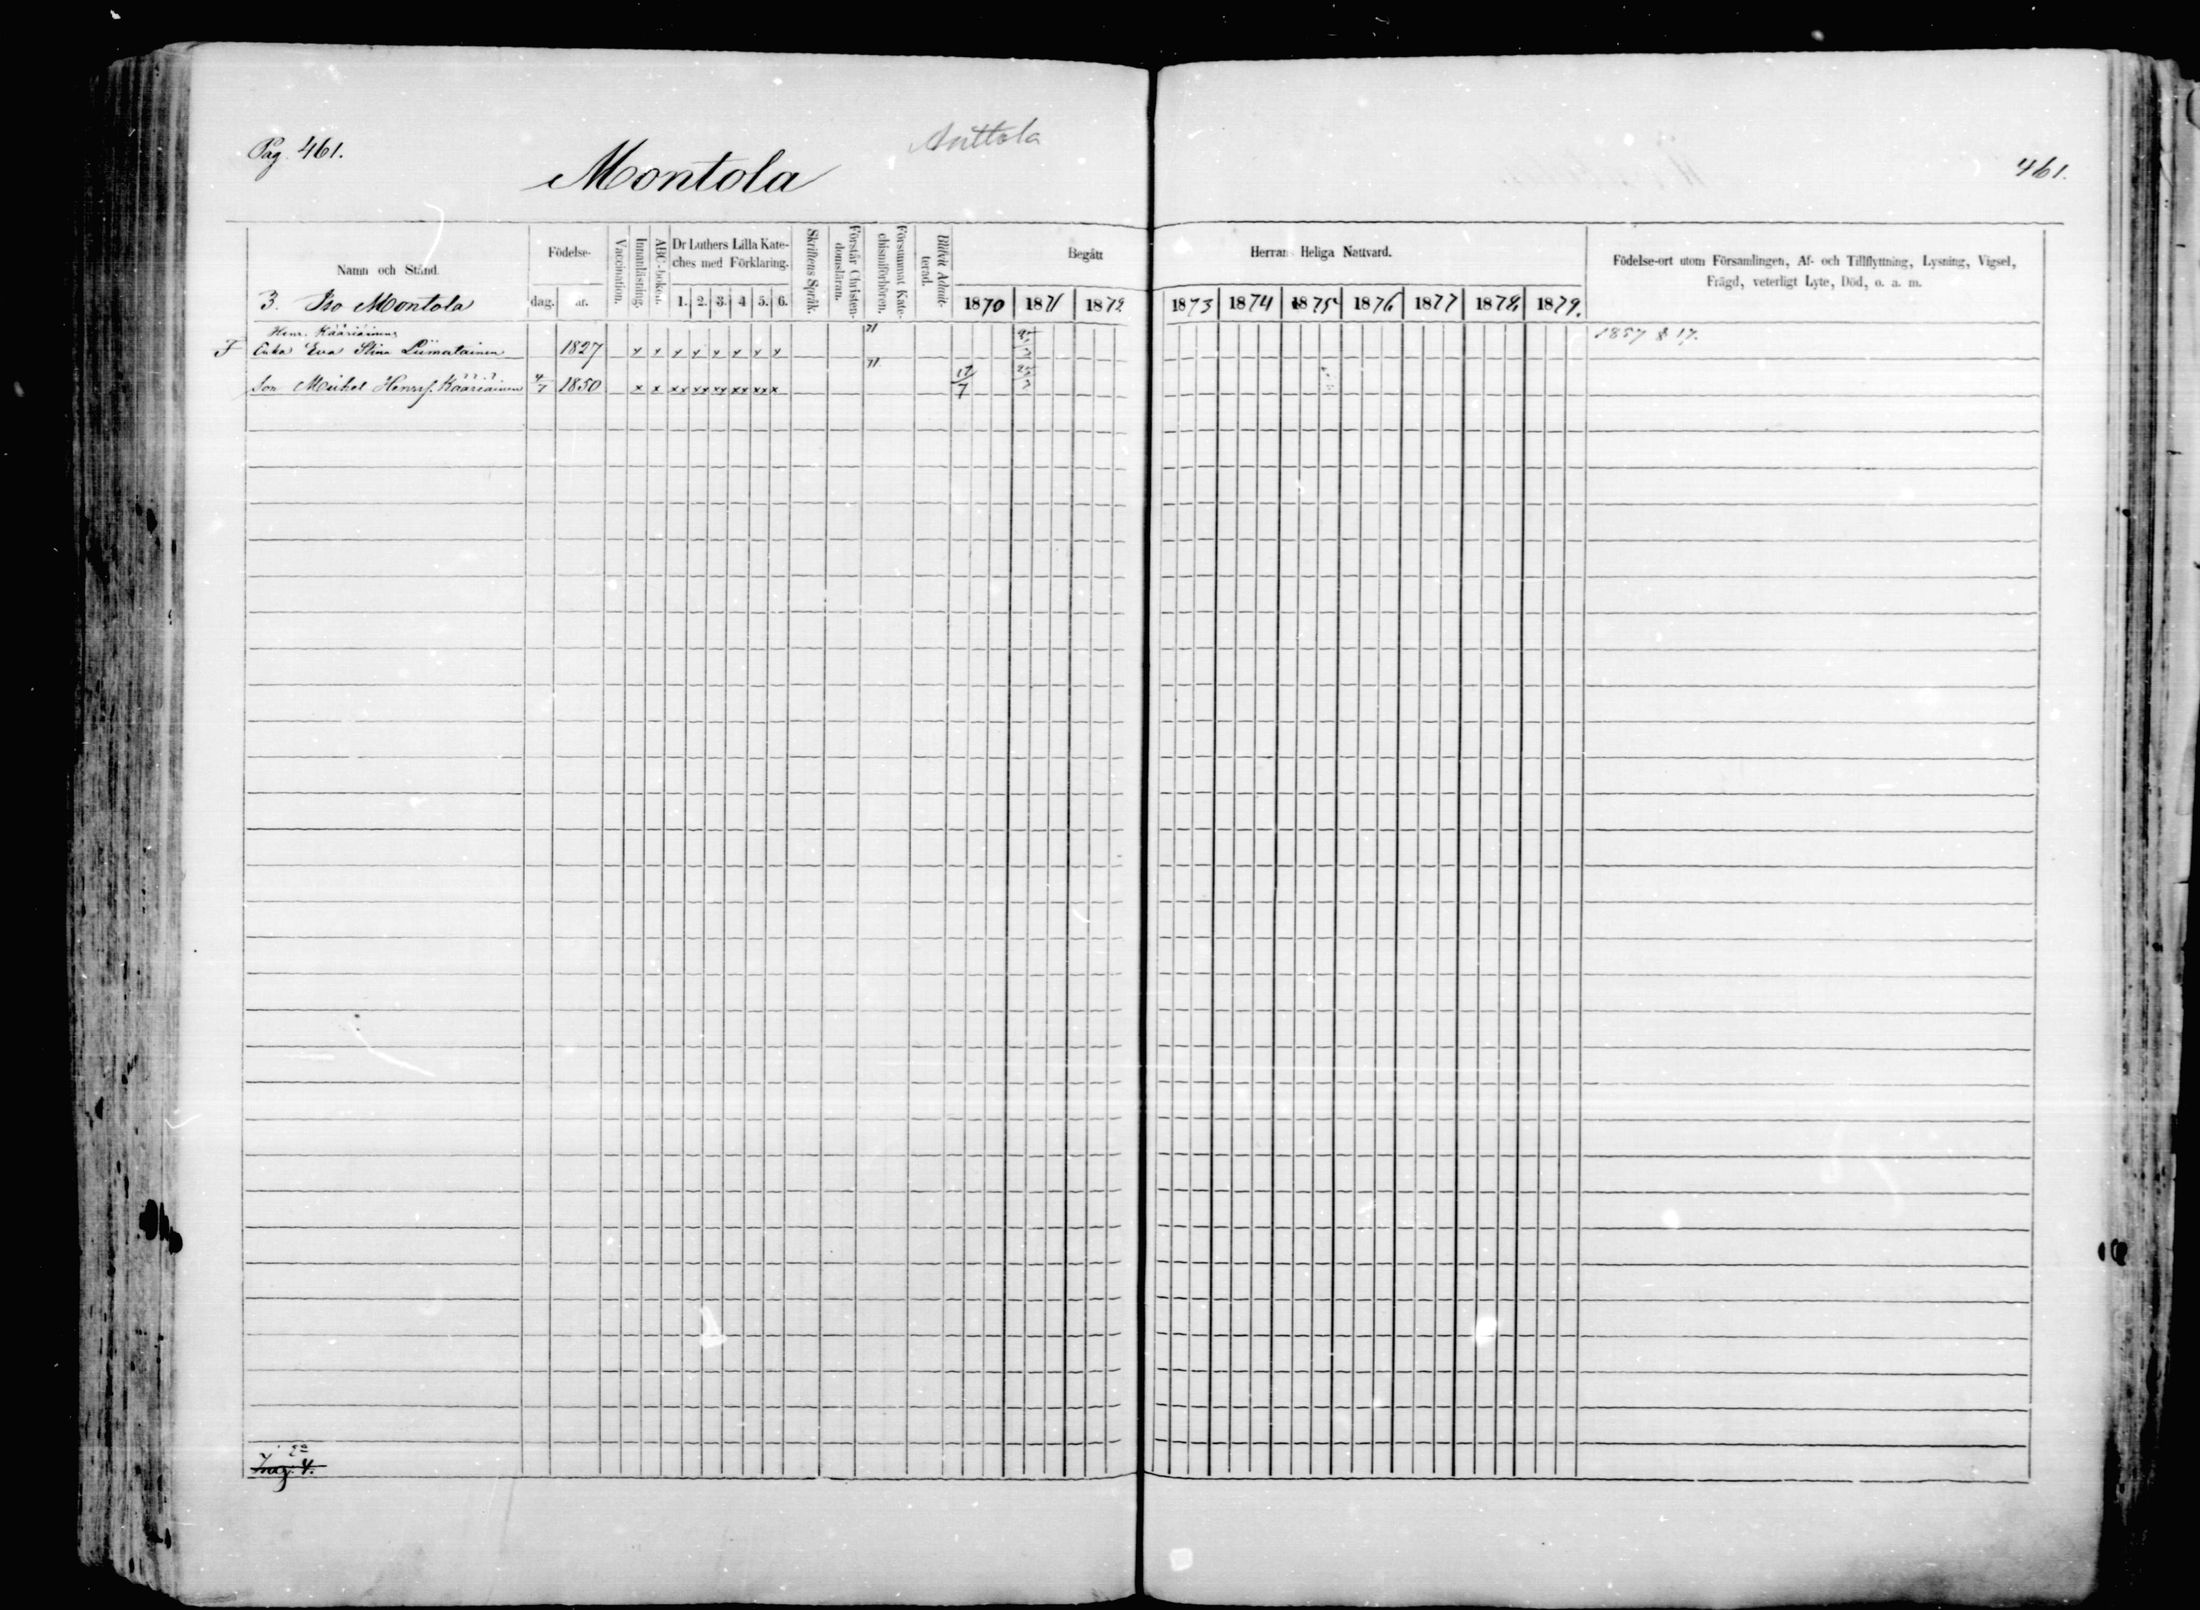 Pag. 461.
Montola
Anttola
461.
Namn och Stånd.
Födelse-
dag.
år.
Vaccination.
Innanläsning.
ABC-boken.
Dr Luthers Lilla Kate-
ches med Förklaring.
1. 2. 3. 4 5. 6.
Skriftens Språk.
Förstår Christen-
domsläran.
Försummat Kate-
chismiförhören.
Blifvit Admit-
terad.
Begått
Herrans Heliga Nattvard.
1870 1871 1872 1873 1874 1875 1876 1877 1878 1879.
Födelse-ort utom Församlingen, Af- och Tillflyttning, Lysning, Vigsel,
Frägd, veterligt Lyte, Död, o. a. m.
3. Iso Montola
Henr. Kääriäinens 71 1857 § 17.
Enka Eva Stina Liimatainen 1827 x x x x x x x x
71
Son Mickel Henrs. Kääriäinen 4/7 1850 x x xx xx xx xx xx x 17/7